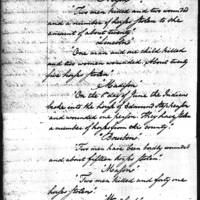 "Two men killed and two wounded
and a number of horses stolen to the
amount of about twenty."
"Lincoln
"One man and one child killed
and two women wounded. About twenty
five horses stolen."
"Madison
"On the 1st day of June the Indians
broke into the house of Edmund Stephenson
and wounded one person. They have taken
a number of horses from this county."
"Bourbon
"Two men have been badly wounded
and about fifteen horses stolen."
"Mason
"Two men killed and forty one
horses stolen."